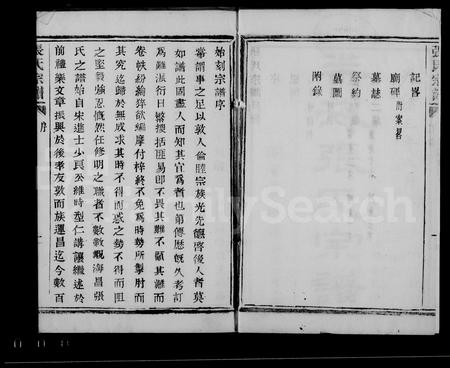 張氏宗譜
記畧
廟碑 附案畧
墓誌
祭約
墓圖
附錄
始刻宗譜序
嘗謂事之足以敦人倫睦宗族光先餼啓後人者莫
如譜此固盡人而知其宜為者也第傳歷旣久考訂
為難派衍日繁摠括匪易即不畏其難不顧其難而
卷帙紛綸猝欲編摩付梓終不免為時勢所掣肘而
其究迄歸於無成求其時不得而惑之勢不得而阻
之堅毅強忍慨然任修明之職者不數數覯海昌張
氏之譜始自宋進士少良公維時型仁講讓繼述於
前禮樂文章振興於後孝友敦而族運昌迄今數百
張氏宗譜
序
FamilySearch